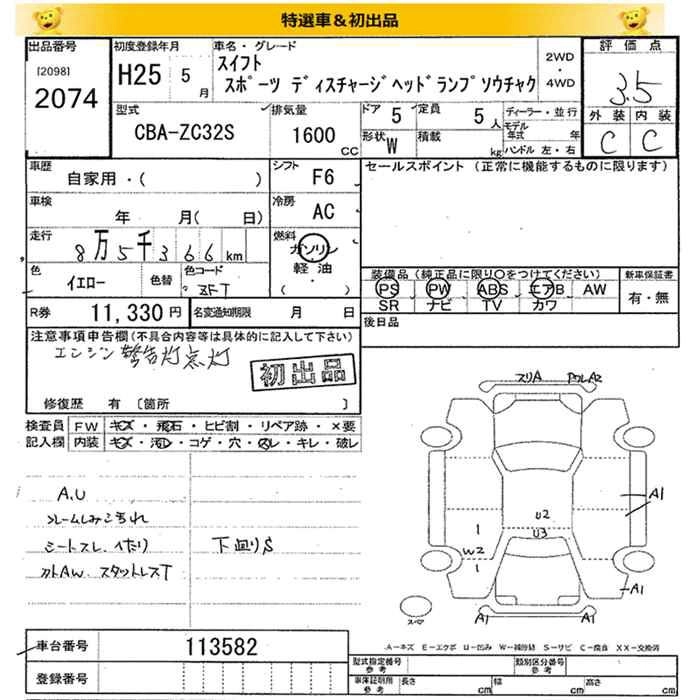 特選車&初出品
出品番号
[2098]
2074
初度登録年月
H25 5月
車名・グレード
スイフト
スポーツ ディスチャージヘッドランプソウチャク
2WD
・
4WD
評価点
3.5
外装 内装
C C
型式
CBA-ZC32S
排気量
1600
CC
ドア 5
定員 5人
形状 W
積載 kg
ディーラー・並行
モデル年式 年
ハンドル 左・右
車歴
自家用・( )
シフト
F6
車検
年 月( 日)
冷房
AC
走行
8万5千366km
燃料
ガソリン
軽油・
( )
色
イエロー
色替
色コード
ZFT
R券
11,330円
名変通知期限
月 日
セールスポイント(正常に機能するものに限ります)
装備品(純正品に限り○をつけてください)
PS PW ABS エアB AW
SR ナビ TV カワ
新車保証書
有・無
後日品
注意事項申告欄(不具合内容等は具体的に記入して下さい)
エンジン警告灯点灯
初出品
修復歴 有〔箇所 〕
検査員記入欄
FW キズ・飛石・ヒビ割・リペア跡・×要
内装 キズ・汚レ・コゲ・穴・スレ・キレ・破レ
A.U
シートスレ.ヘたり
下廻りS
スタットレスT
スリA
A1
U2
U3
1
W2
1
A1
A1
A1
スペア
A-キズ E-エクボ U-凹み W-補修跡 S-サビ C-腐食 XX-交換済
車台番号
113582
登録番号
型式指定番号
参考
類別区分番号
参考
車庫証明用
参考
長さ cm
幅 cm
高さ cm